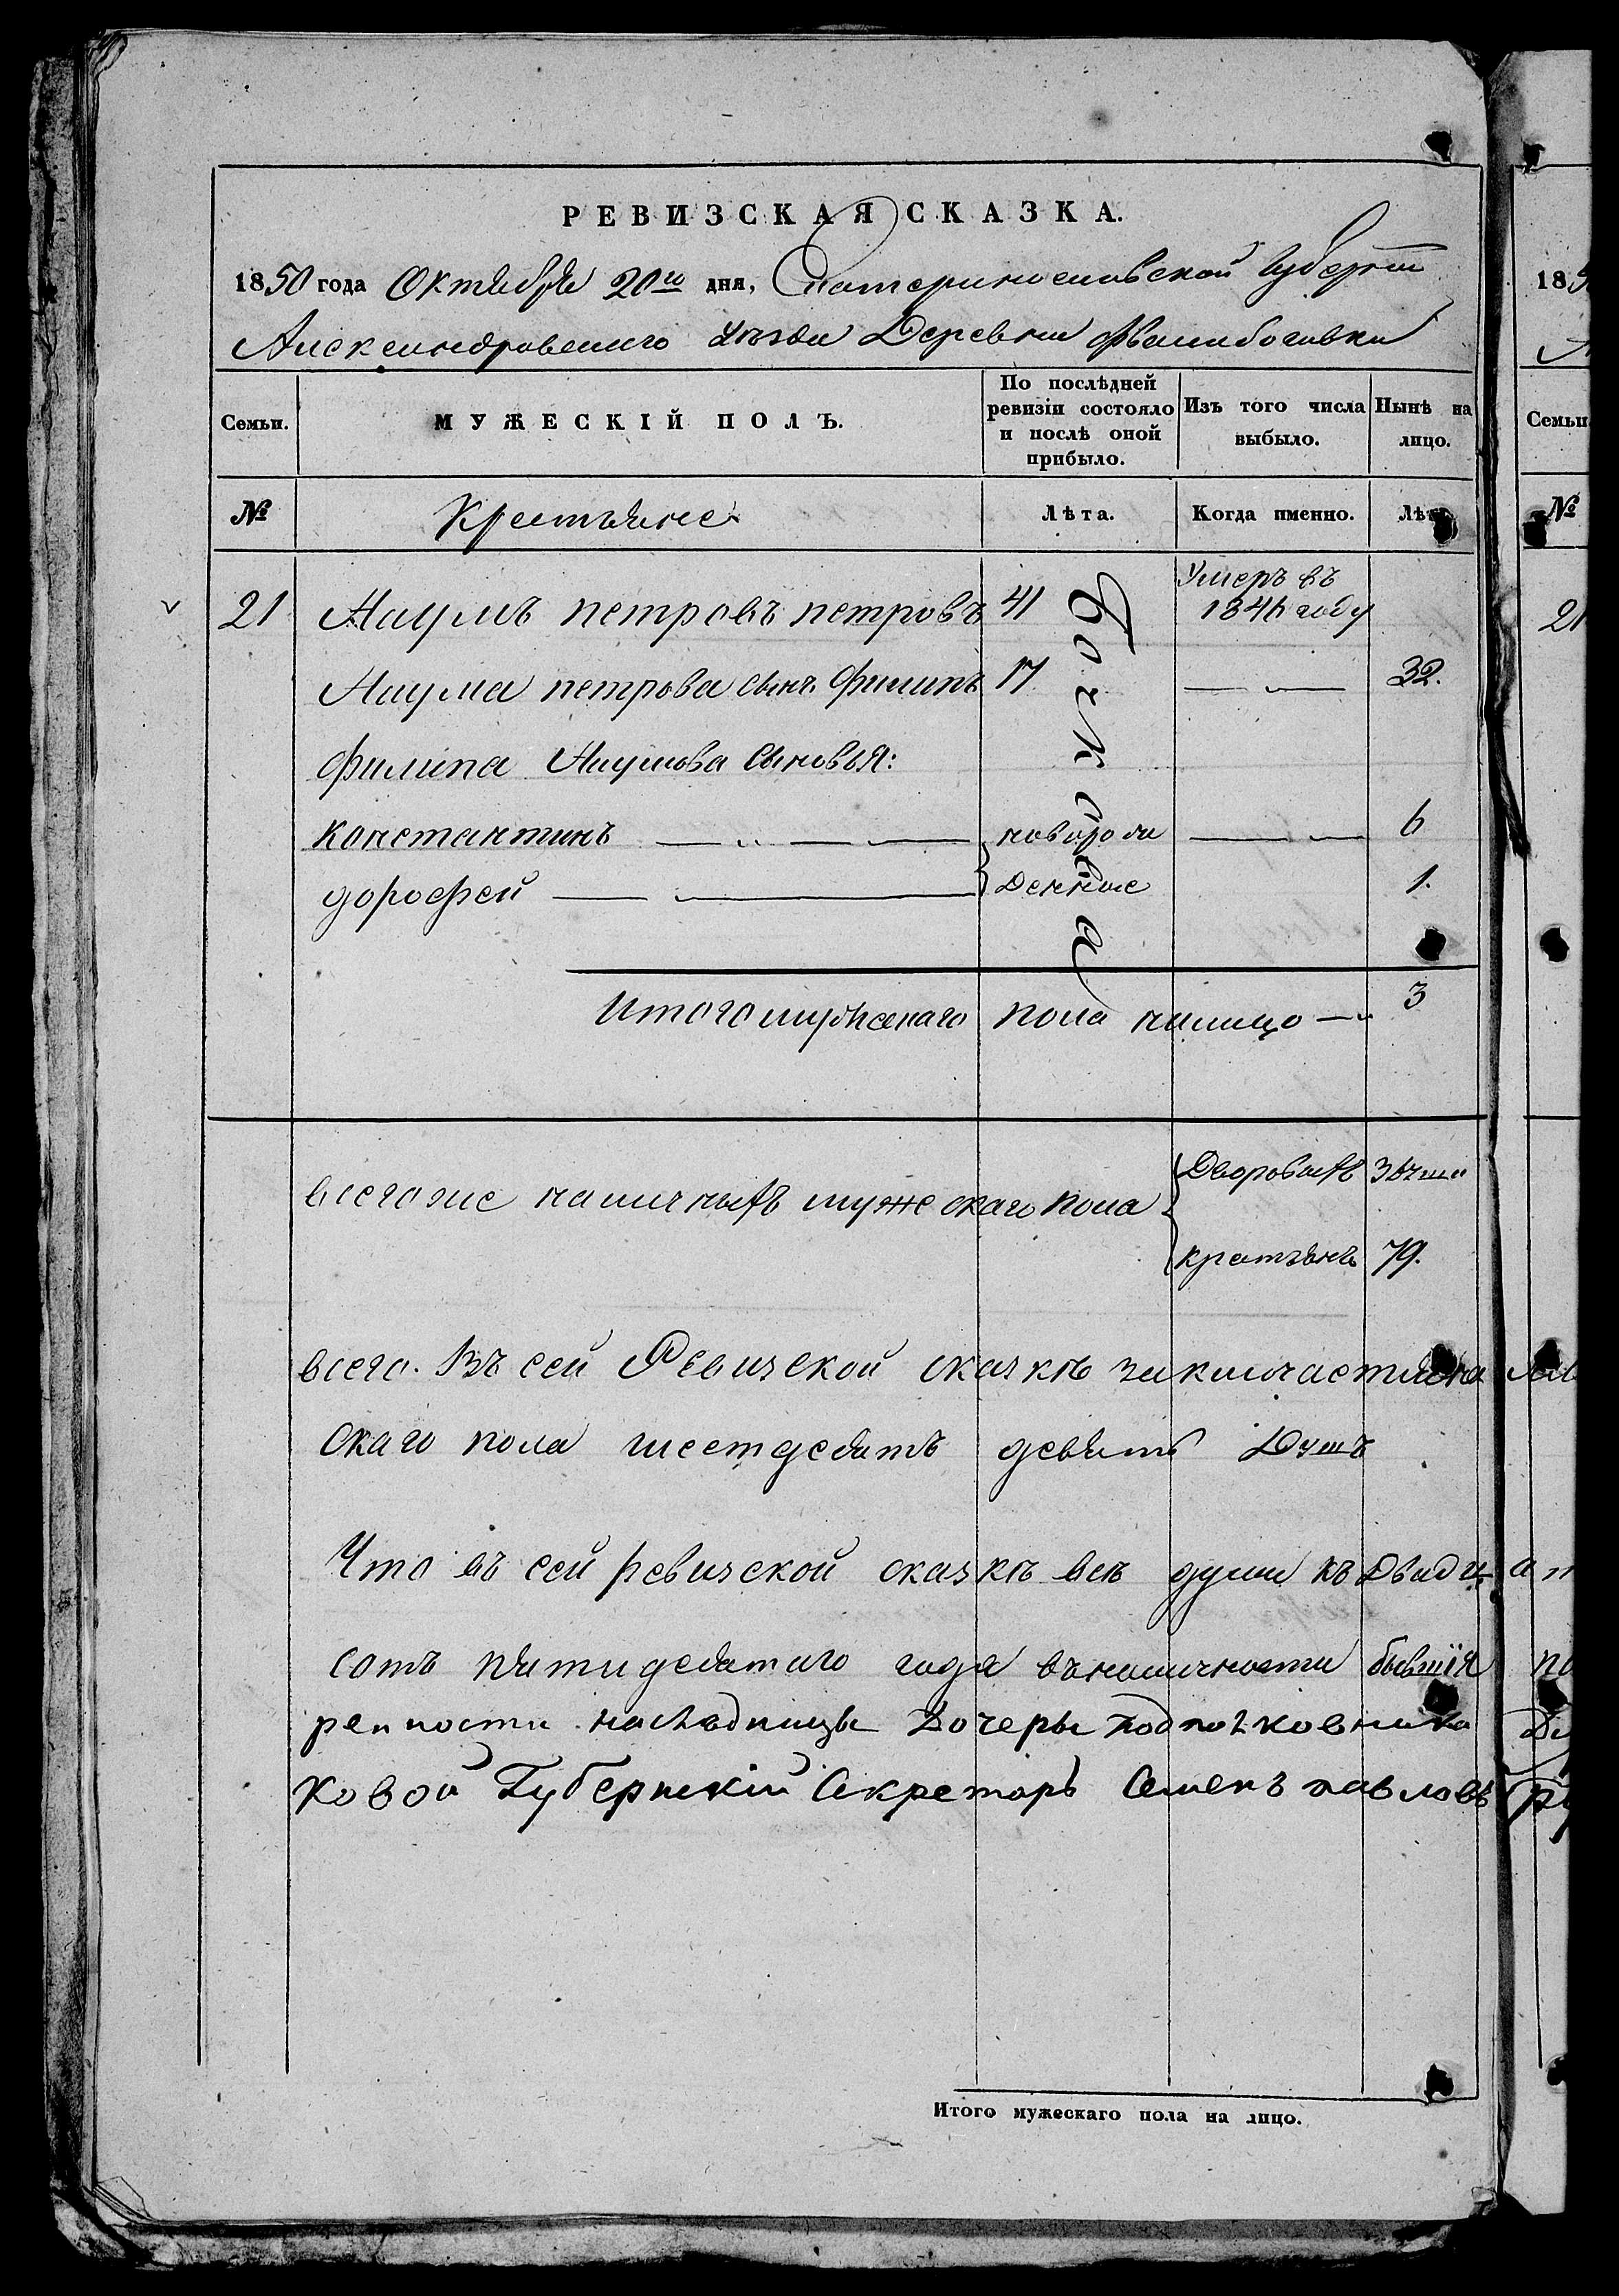 РЕВИЗСКАЯ СКАЗКА.
1850 года Октября 20го дня, Екатеринославской Губерніи
Александровскаго уѣзда Деревни
Семьи.
МУЖЕСКІЙ ПОЛЪ.
По послѣдней ревизіи состояло и послѣ оной прибыло.
Изъ того числа выбыло.
Нынѣ на лицо.
№
Крестьяне
Лѣта.
Когда именно.
Лѣта
21 Наумъ петровъ петровъ 41 Умеръ въ 1846 году
Наума петрова сынъ Филипъ 17 — „ — 32.
Филипа Наумова сыновья:
константинъ — „ — — новорож — „ — 6
дорофей — „ — денные 1.
Итого мужескаго пола налицо — „ 3
всего же наличныхъ мужескаго пола
Дворовыхъ 3
крестьянъ 79.
всего. Въ сей Ревизской сказкѣ заключается
скаго пола шестдесятъ девять Душъ
Что въ сей ревизской сказкѣ всѣ души къ Двадц
сотъ пятидесятаго года въ наличности бывшія
репности наслѣдницы Дочеры подполковника
ковой Губернскій Секретарь Семенъ павловъ
Итого мужескаго пола на лицо.
185
Семьи
№
21